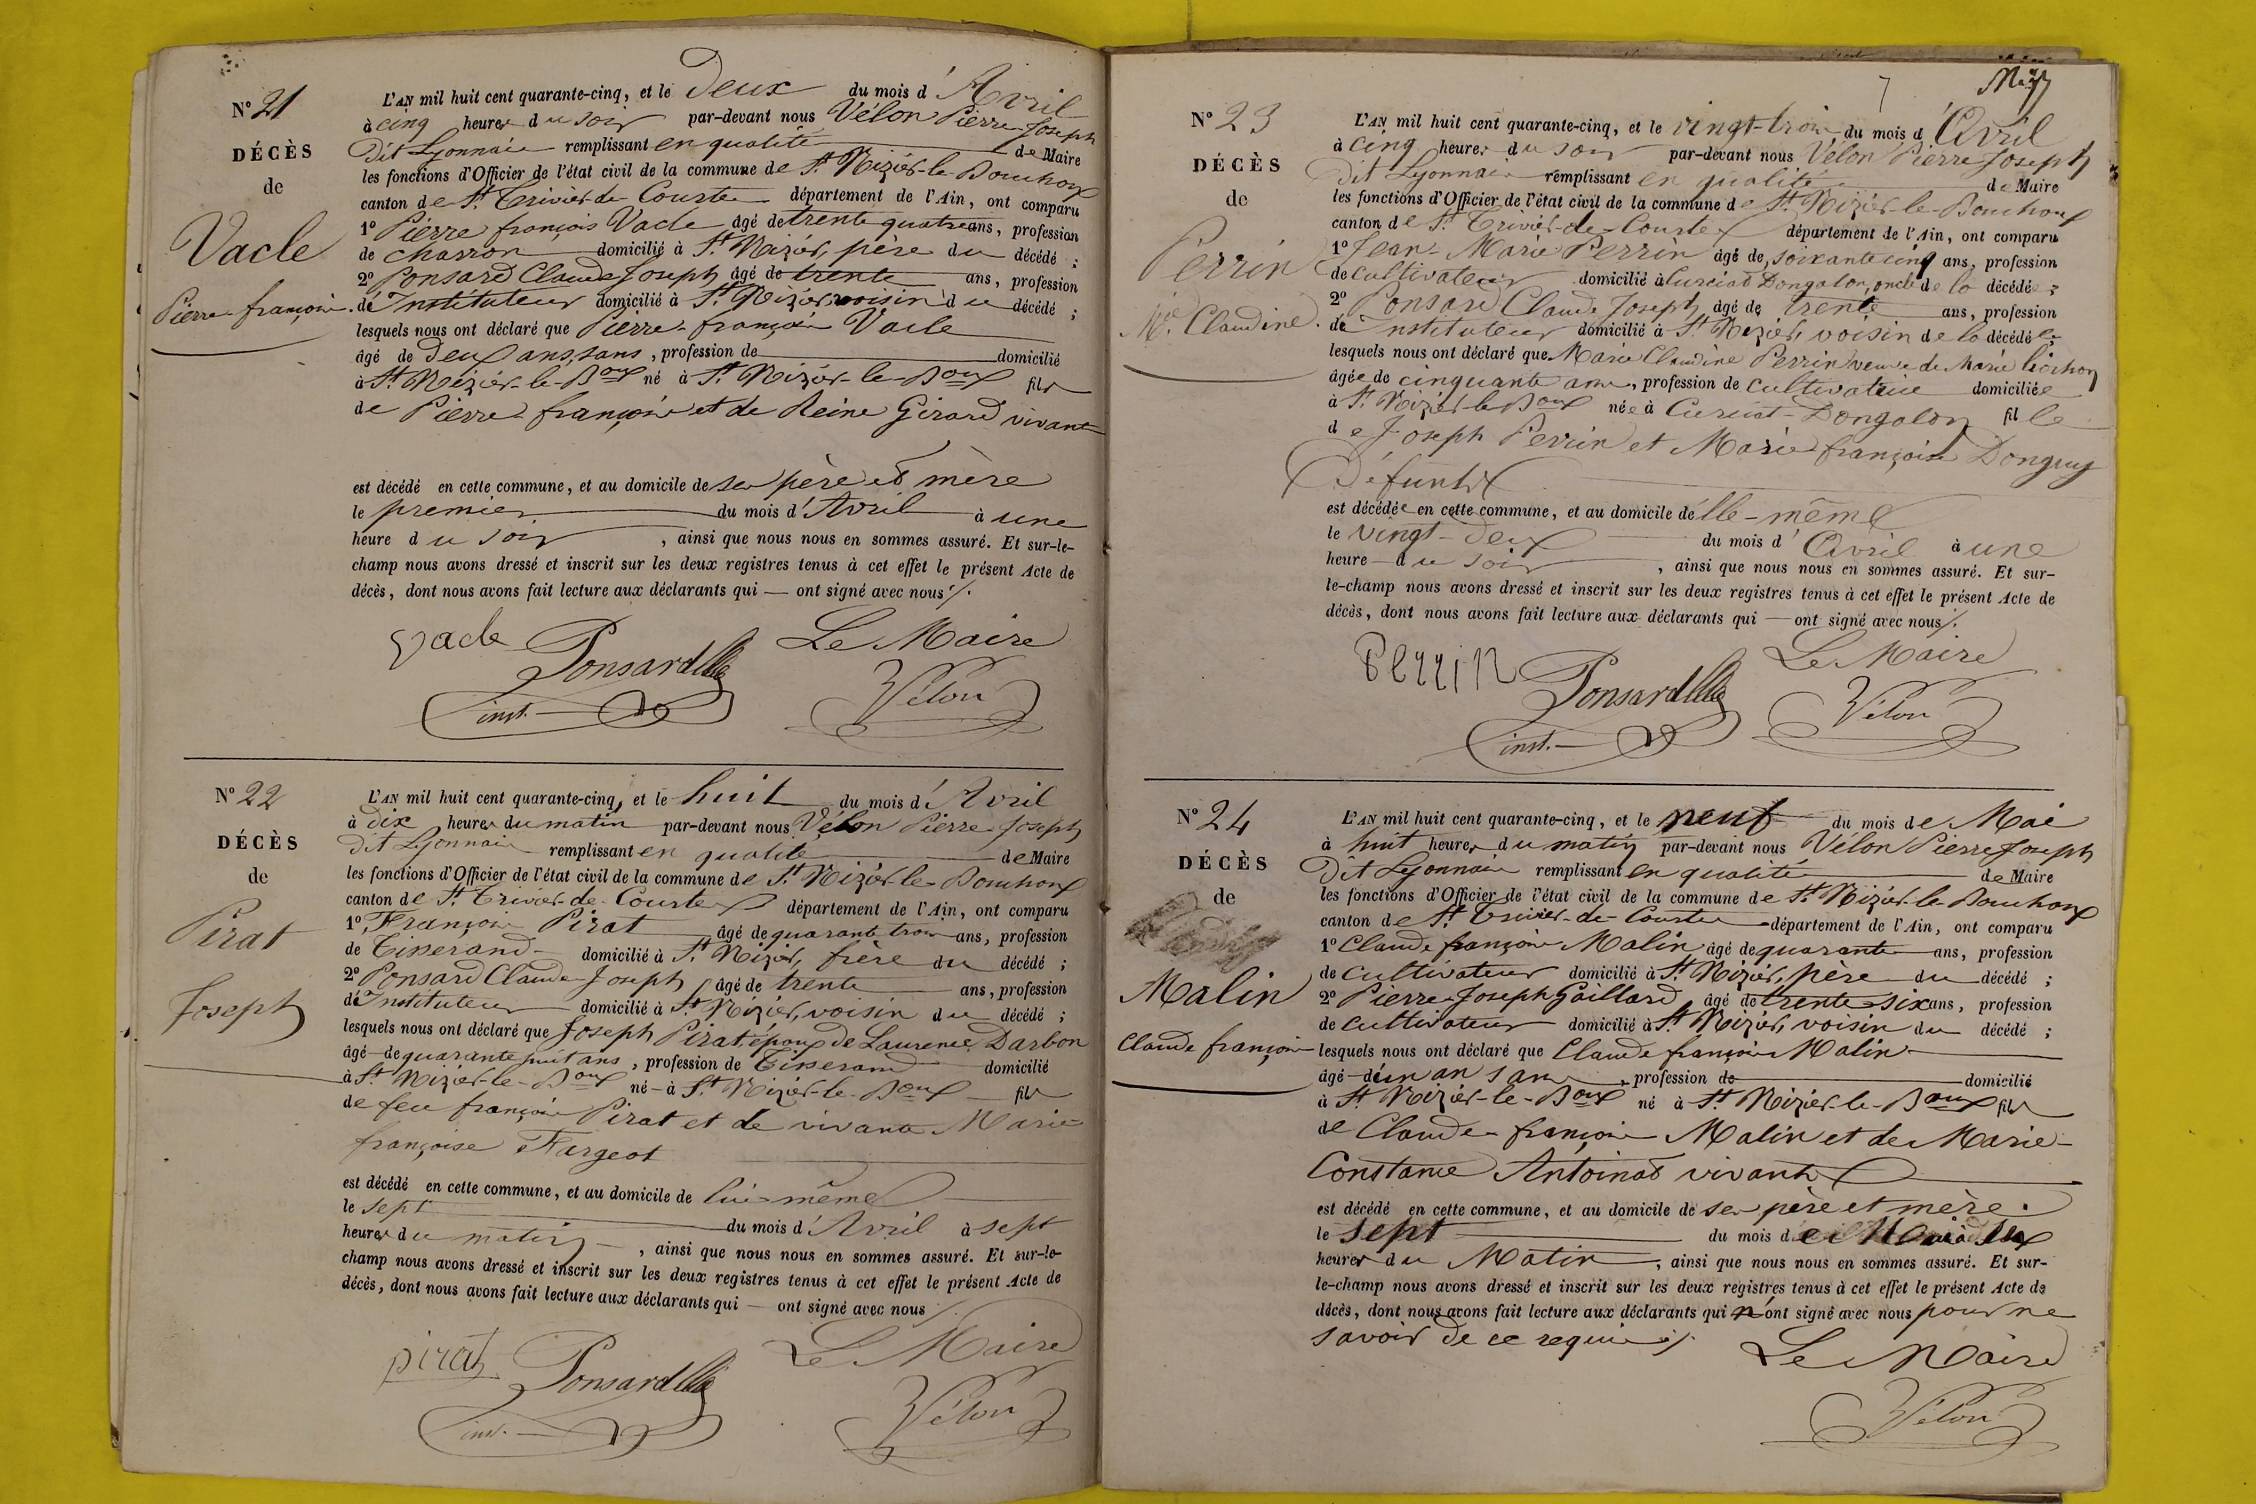 N° 21
DÉCÈS
de
Vacle
Pierre françois.
L'AN mil huit cent quarante-cinq, et le Deux du mois d'Avril
à cinq heures du soir par-devant nous Vélon Pierre Joseph
Dit Lyonnais remplissant en qualité de Maire
les fonctions d'Officier de l'état civil de la commune de St. Nizier-le-Bouchoux
canton de St. Trivier-de-Courtes département de l'Ain, ont comparu
1° Pierre françois Vacle âgé de trente quatre ans, profession
de charron domicilié à St. Nizier, père du décédé ;
2° Ponsard Claude Joseph âgé de trente ans, profession
de Instituteur domicilié à St. Nizier, voisin du décédé ;
lesquels nous ont déclaré que Pierre françois Vacle
âgé de Deux ans, sans, profession de domicilié
à St. Nizier-le-Boux né à St. Nizier-le-Boux fils
de Pierre françois et de Reine Girard vivants
est décédé en cette commune, et au domicile de ses père et mère
le premier du mois d'Avril à une
heure du soir, ainsi que nous nous en sommes assuré. Et sur-le-
champ nous avons dressé et inscrit sur les deux registres tenus à cet effet le présent Acte de
décès, dont nous avons fait lecture aux déclarants qui — ont signé avec nous ./.
vacle Ponsard Le Maire
inst. Vélon
N° 22
DÉCÈS
de
Pirat
Joseph
L'AN mil huit cent quarante-cinq, et le huit du mois d'Avril
à dix heures du matin par-devant nous Vélon Pierre Joseph
Dit Lyonnais remplissant en qualité de Maire
les fonctions d'Officier de l'état civil de la commune de St. Nizier-le-Bouchoux
canton de St. Trivier-de-Courtes département de l'Ain, ont comparu
1° François Pirat âgé de quarante trois ans, profession
de Tisserand domicilié à St. Nizier, frère du décédé ;
2° Ponsard Claude Joseph âgé de trente ans, profession
de Instituteur domicilié à St. Nizier, voisin du décédé ;
lesquels nous ont déclaré que Joseph Pirat, époux de Laurence Darbon
âgé de quarante huit ans, profession de Tisserand domicilié
à St. Nizier-le-Boux né à St. Nizier-le-Boux fils
de feu françois Pirat et de vivante Marie
françoise Fargeot
est décédé en cette commune, et au domicile de lui-même
le sept du mois d'Avril à sept
heures du matin, ainsi que nous nous en sommes assuré. Et sur-le-
champ nous avons dressé et inscrit sur les deux registres tenus à cet effet le présent Acte de
décès, dont nous avons fait lecture aux déclarants qui — ont signé avec nous ./.
pirat Ponsard Le Maire
inst. Vélon
7
N° 23
DÉCÈS
de
Perrin
Mie. Claudine.
L'AN mil huit cent quarante-cinq, et le vingt-trois du mois d'Avril
à cinq heures du soir par-devant nous Vélon Pierre Joseph
Dit Lyonnais remplissant en qualité de Maire
les fonctions d'Officier de l'état civil de la commune de St. Nizier-le-Bouchoux
canton de St. Trivier-de-Courtes département de l'Ain, ont comparu
1° Jean-Marie Perrin âgé de soixante cinq ans, profession
de cultivateur domicilié à Curciat Dongalon, oncle de la décédée ;
2° Ponsard Claude Joseph âgé de trente ans, profession
de instituteur domicilié à St. Nizier, voisin de la décédée
lesquels nous ont déclaré que Marie Claudine Perrin veuve de Marie
âgée de cinquante ans, profession de cultivatrice domiciliée
à St. Nizier-le-Boux née à Curciat-Dongalon fille
de Joseph Perrin et Marie françoise Donguy
Défunts
est décédée en cette commune, et au domicile d'elle-même
le vingt-deux du mois d'Avril à une
heure du soir, ainsi que nous nous en sommes assuré. Et sur-
le-champ nous avons dressé et inscrit sur les deux registres tenus à cet effet le présent Acte de
décès, dont nous avons fait lecture aux déclarants qui — ont signé avec nous ./.
Perrin Ponsard Le Maire
inst. Vélon
N° 24
DÉCÈS
de
Malin
Claude françois
L'AN mil huit cent quarante-cinq, et le neuf du mois de Mai
à huit heures du matin par-devant nous Vélon Pierre Joseph
Dit Lyonnais remplissant en qualité de Maire
les fonctions d'Officier de l'état civil de la commune de St. Nizier-le-Bouchoux
canton de St. Trivier-de-Courtes département de l'Ain, ont comparu
1° Claude françois Malin âgé de quarante ans, profession
de cultivateur domicilié à St. Nizier, père du décédé ;
2° Pierre Joseph Gaillard âgé de trente-six ans, profession
de cultivateur domicilié à St. Nizier, voisin du décédé ;
lesquels nous ont déclaré que Claude françois Malin
âgé d'un an sans, profession de domicilié
à St. Nizier-le-Boux né à St. Nizier-le-Boux fils
de Claude françois Malin et de Marie
Constance Antoinat vivants
est décédé en cette commune, et au domicile de ses père et mère
le sept du mois de Mai à
heures du Matin, ainsi que nous nous en sommes assuré. Et sur-
le-champ nous avons dressé et inscrit sur les deux registres tenus à cet effet le présent Acte de
décès, dont nous avons fait lecture aux déclarants qui n'ont signé avec nous pour ne
savoir de ce requis ./.
Le Maire
Vélon